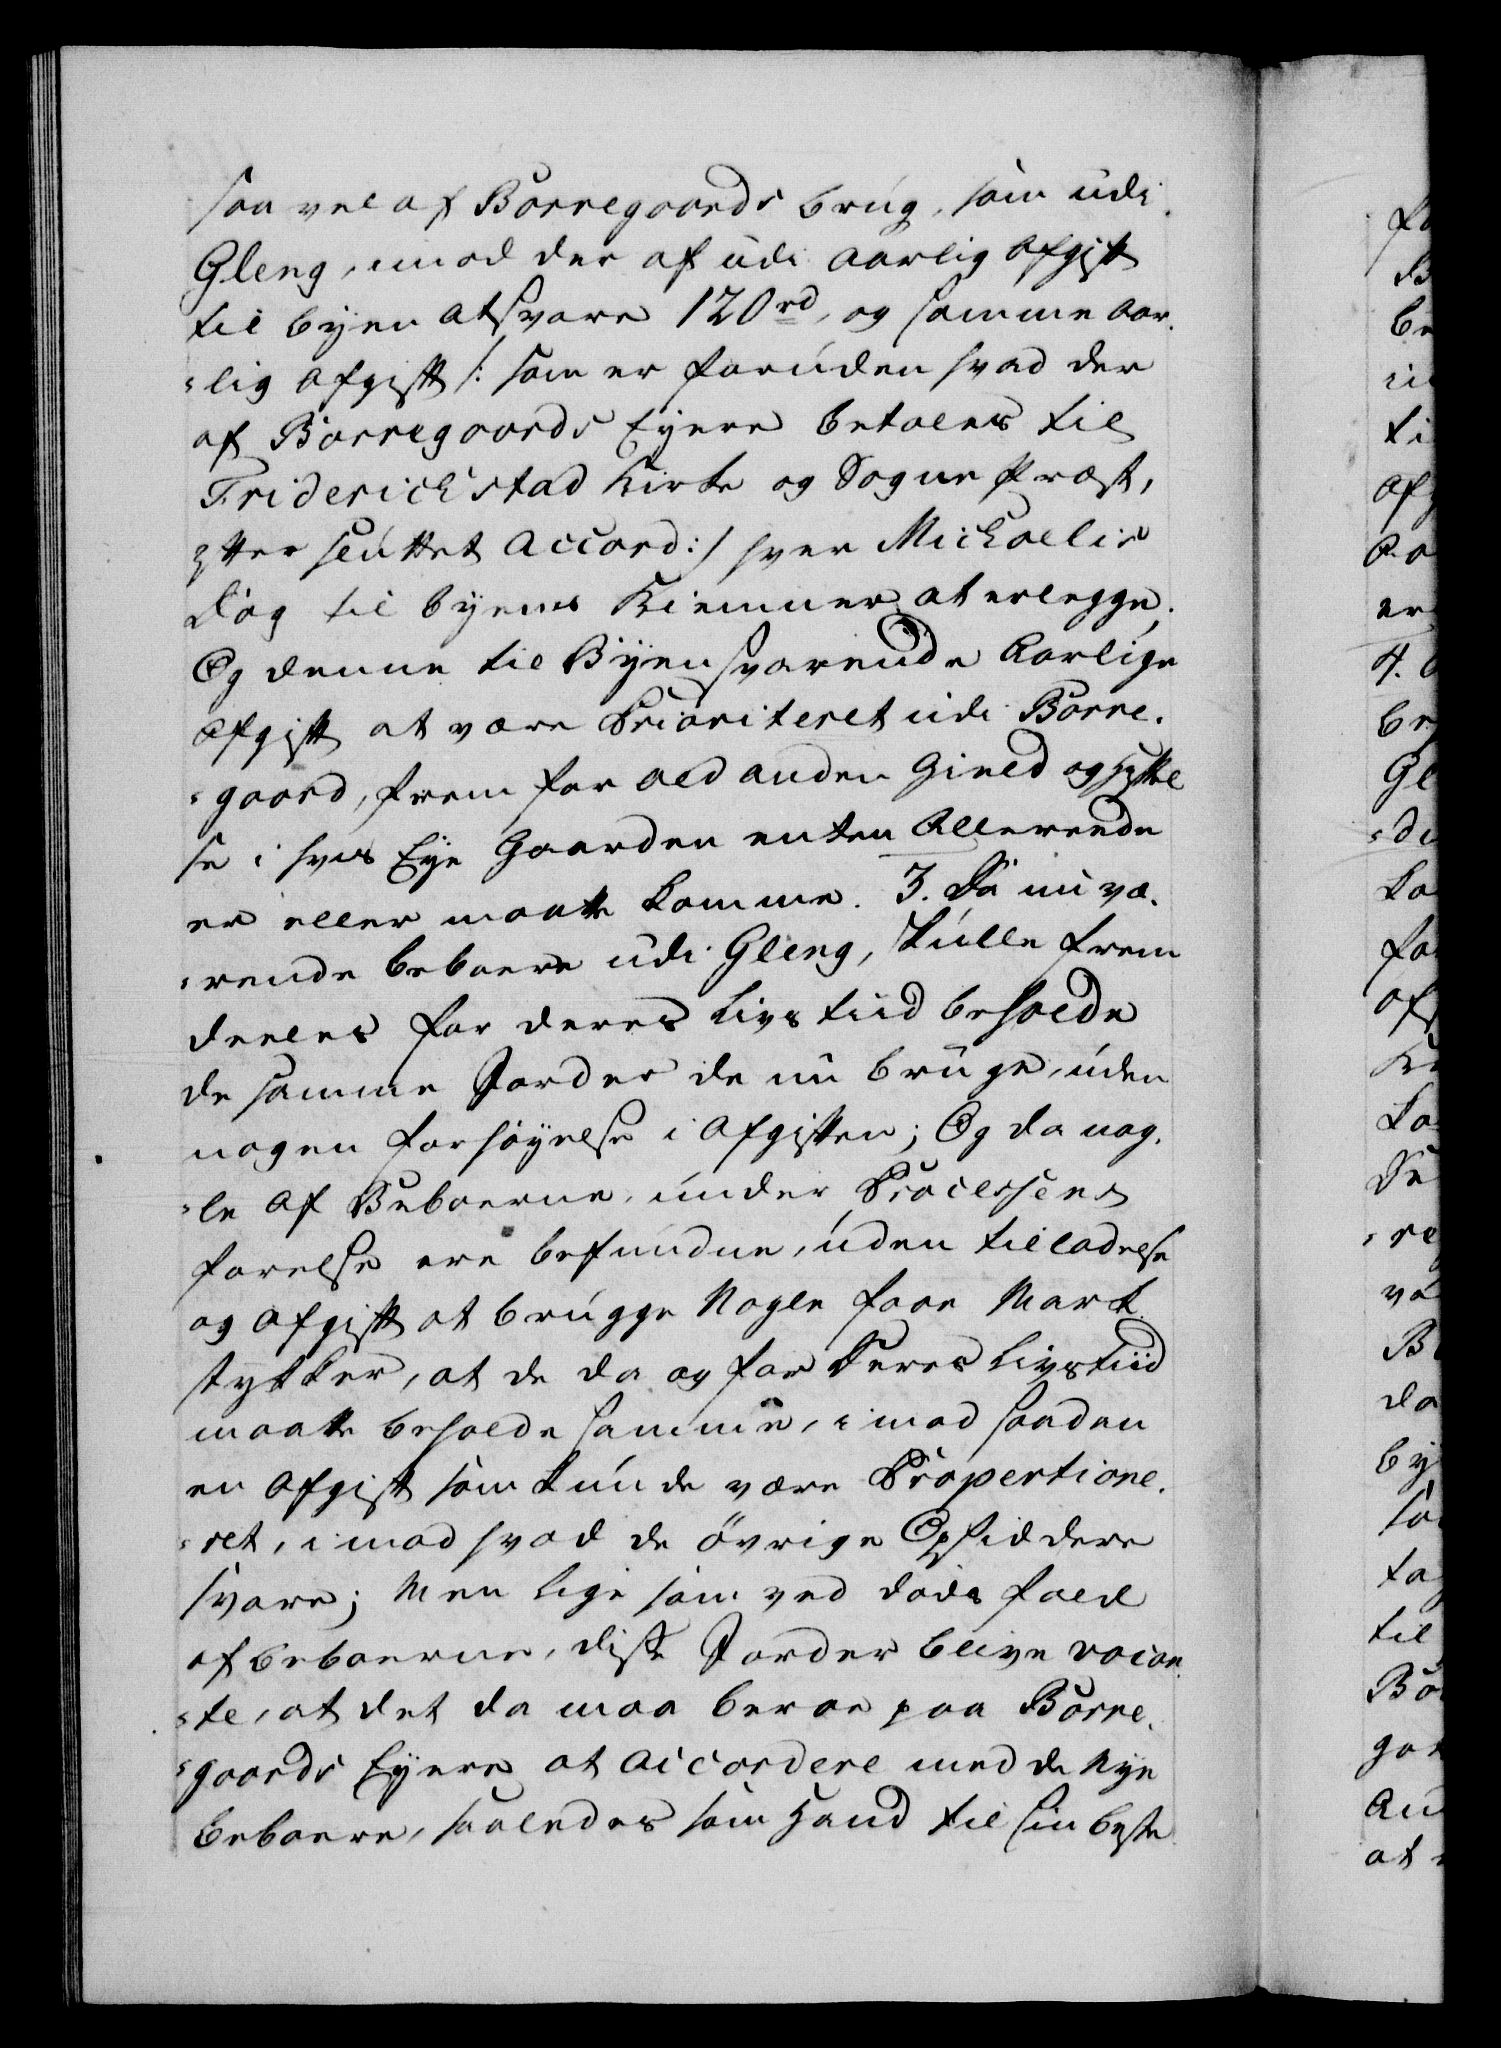 saa vel af Borregaards brug, som udi
Gleng, imod der af udi aarlig afgift
til byen at svare 120 rd, og samme aar-
-lig afgift /: som er foruden hvad der
af Borregaards Eyere betales til
Friderichstad Kirke og Sogne Præst,
efter sluttet accord :/ hver Michaelis
dag til byens Kiemner at erlegge.
Og denne til Byen svarende Aarlige
Afgift at være Prioriteret udi Borre-
-gaard, frem for ald anden Gield og hefftel
se i hvis Eye Gaarden enten Allereede
er eller maatte komme. 3. De nu væ-
-rende beboere udi Gleng, skulle frem
deeles for deres Livs tiid beholde
de samme Jorder de nu bruge, uden
nogen forhøyelse i Afgiften; Og da nog-
-le af Beboerne under Processens
førelse ere befundne, uden tilladelse
og afgift at brugge Nogle faae Mark
stykker, at de da og for Deres Livstiid
maatte beholde samme, imod saadan
en Afgift som kunde være Propertione-
-ret, imod hvad de övrige Opsiddere
svare; Men lige som ved döds fald
af beboerne, disse Jorder blive vacan-
-te, at det da maa beroe paa Borre-
-gaards Eyere at accordere med de Nye
beboere, saaledes som hand til sin beste